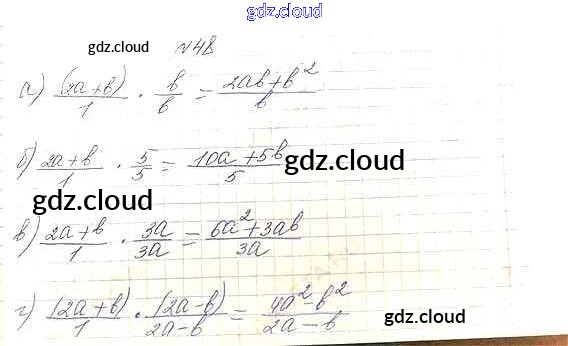 gdz.cloud
gdz.cloud
№48
а) (2a+b)/1 · b/b = 2ab+b²/b
б) 2a+b/1 · 5/5 = 10a+5b/5
gdz.cloud
gdz.cloud
в) 2a+b/1 · 3a/3a = 6a²+3ab/3a
г) (2a+b)/1 · (2a-b)/2a-b = 4a²-b²/2a-b
gdz.cloud